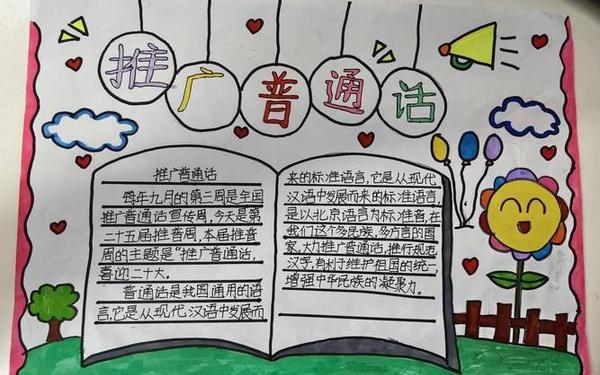 推广普通话
推广普通话
每年九月的第三周是全国
推广普通话宣传周,今天是第
二十五届推普周,本届推普
周的主题是“推广普通话,
喜迎二十大。
普通话是我国通用的语
言,它是从现代汉语中发展而
来的标准语言,它是从现代
汉语中发展而来的标准语言,
是以北京语言为标准音,在
我们这个多民族、多方言的国
家,大力推广普通话,推行规范
汉字,有利于维护祖国的统一,
增强中华民族的凝聚力。